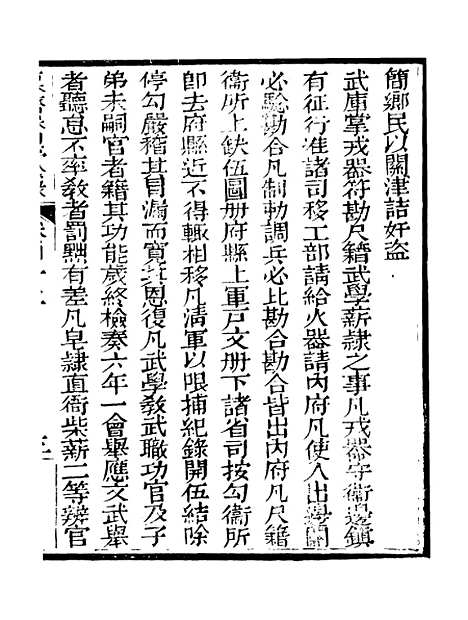 簡鄉民以關津詰奸盜
武庫掌戎器符勘尺籍武學薪隷之事凡戎器守衞邊鎮
有征行准諸司移工部請給火器請內府凡使人出關
必騐勘合凡制勅調兵必比勘合勘合皆出內府凡尺籍
衞所上缺伍圖册府縣上軍戸文册下諸省司按勾衞所
卽去府縣近不得輙相移凡淸軍以限捕紀錄開伍結除
停勾嚴稽其貝漏而寬其恩復凡武學敎武職功官及子
弟未嗣官者籍其功能歲終檢奏六年一會舉應文武舉
者聽怠不率敎者罰黜有差凡皁隷直衙柴薪二等辨官